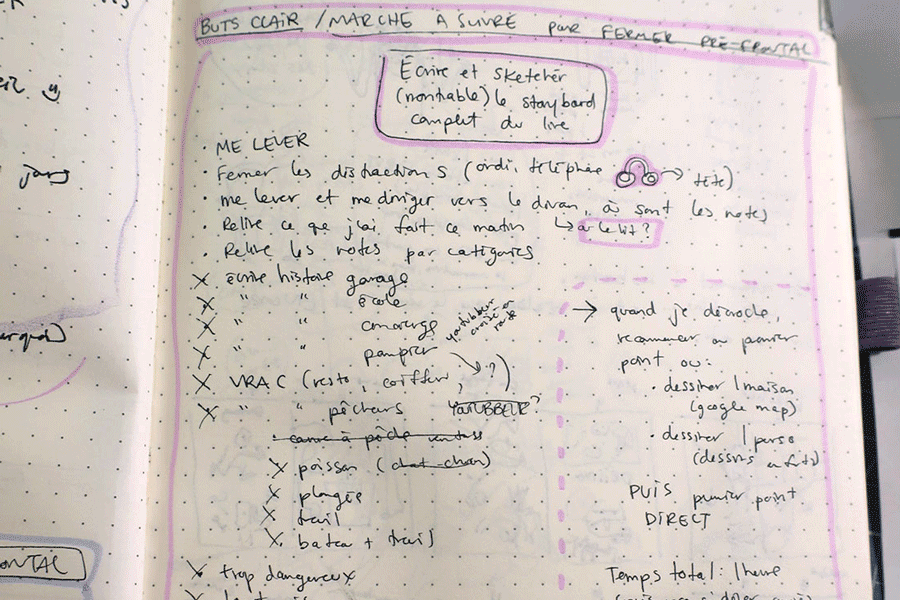 BUTS CLAIR / MARCHE A SUIVRE pour FERMER PRÉ-FRONTAL
Écrire et sketcher
(montrable) le storybord
complet du livre
• ME LEVER
• Fermer les distractions (ordi, téléphone → tête)
• me lever et me diriger vers le divan, où sont les notes
• Relire ce que j'ai fait ce matin ↳ou le lit?
• Relire les notes par catégories
X écrire histoire garage
X " " école
X " " concierge
X " " pompier
X VRAC (resto coiffeur, ?)
X " " pêcheurs YOUTUBBEUR?
• canne à pêche
X poisson (chat-chan)
X plongée
X trail
X bateau + trail
X trop dangereux
→ quand je décroche,
recommencer au premier
point ou:
• dessiner 1 maison
(google map)
• dessiner 1 perso
(dessins enfants)
PUIS premier point
DIRECT
Temps total: 1 heure
jans
ONTAL